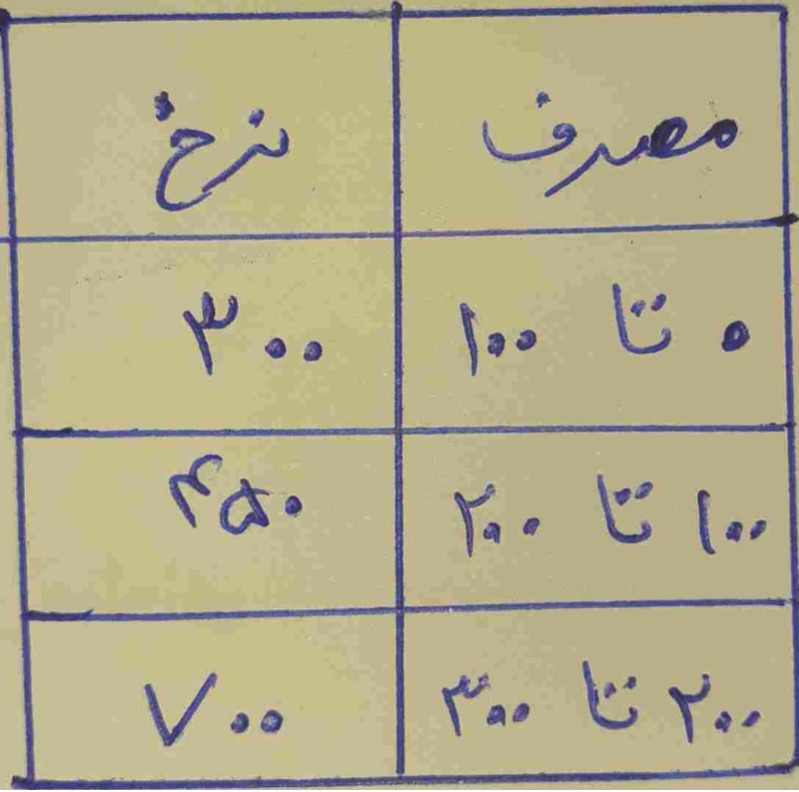 مصرف نرخ
۰ تا ۱۰۰ ۳۰۰
۱۰۰ تا ۲۰۰ ۴۵۰
۲۰۰ تا ۳۰۰ ۷۰۰